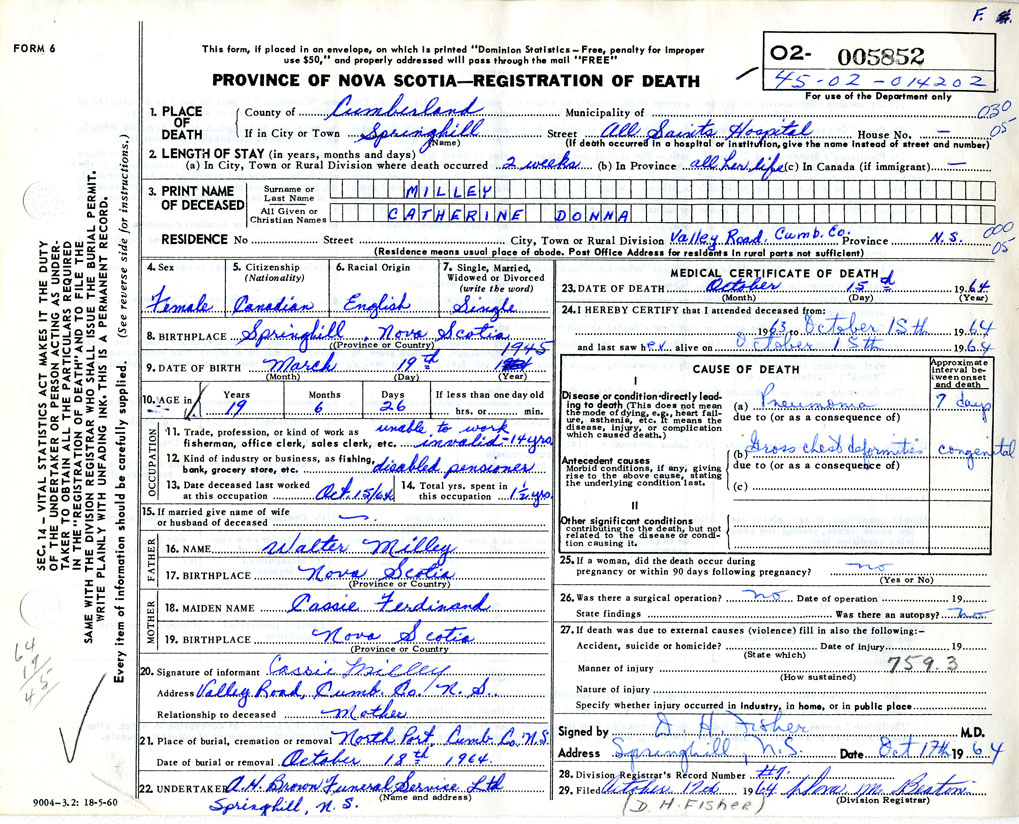 F.
FORM 6
This form, if placed in an envelope, on which is printed "Dominion Statistics – Free, penalty for improper
use $50," and properly addressed will pass through the mail "FREE"
PROVINCE OF NOVA SCOTIA—REGISTRATION OF DEATH
O2- 005852
45-02-014202
For use of the Department only
1. PLACE OF DEATH
County of Cumberland Municipality of 030
If in City or Town Springhill Street All Saints Hospital House No. — 05
(Name) (If death occurred in a hospital or institution, give the name instead of street and number)
2. LENGTH OF STAY (in years, months and days)
(a) In City, Town or Rural Division where death occurred 2 weeks (b) In Province all her life (c) In Canada (if immigrant) —
3. PRINT NAME OF DECEASED
Surname or Last Name MILLEY
All Given or Christian Names CATHERINE DONNA
000
RESIDENCE No Street City, Town or Rural Division Valley Road, Cumb. Co. Province N.S. 05
(Residence means usual place of abode. Post Office Address for residents in rural parts not sufficient)
4. Sex Female
5. Citizenship (Nationality) Canadian
6. Racial Origin English
7. Single, Married, Widowed or Divorced (write the word) Single
8. BIRTHPLACE Springhill, Nova Scotia
(Province or Country)
1945
9. DATE OF BIRTH March 19th
(Month) (Day) (Year)
10. AGE in Years 19 Months 6 Days 26 If less than one day old hrs. or min.
OCCUPATION
11. Trade, profession, or kind of work as unable to work
fisherman, office clerk, sales clerk, etc. invalid - 14 yrs.
12. Kind of industry or business, as fishing,
bank, grocery store, etc. disabled pensioner
13. Date deceased last worked at this occupation Oct. 15/64
14. Total yrs. spent in this occupation 1½ yrs.
15. If married give name of wife
or husband of deceased —
FATHER
16. NAME Walter Milley
17. BIRTHPLACE Nova Scotia
(Province or Country)
MOTHER
18. MAIDEN NAME Cassie Ferdinand
19. BIRTHPLACE Nova Scotia
(Province or Country)
20. Signature of informant Cassie Milley
Address Valley Road, Cumb. Co. N. S.
Relationship to deceased Mother
21. Place of burial, cremation or removal North Port, Cumb. Co. N.S.
Date of burial or removal October 18th 1964
22. UNDERTAKER A. H. Brown Funeral Service Ltd
(Name and address)
Springhill, N. S.
MEDICAL CERTIFICATE OF DEATH
23. DATE OF DEATH October 15 1964
(Month) (Day) (Year)
24. I HEREBY CERTIFY that I attended deceased from:
1963 to October 15th 1964
and last saw her alive on October 15th 1964
CAUSE OF DEATH
Approximate interval between onset and death
I
Disease or condition directly leading to death (This does not mean the mode of dying, e.g., heart failure, asthenia, etc. It means the disease, injury, or complication which caused death.)
(a) Pneumonia 7 days
due to (or as a consequence of)
Antecedent causes
Morbid conditions, if any, giving rise to the above cause, stating the underlying condition last.
(b) Gross chest deformities congenital
due to (or as a consequence of)
(c)
II
Other significant conditions
contributing to the death, but not related to the disease or condition causing it.
25. If a woman, did the death occur during
pregnancy or within 90 days following pregnancy? no
(Yes or No)
26. Was there a surgical operation? no Date of operation 19
State findings Was there an autopsy? no
27. If death was due to external causes (violence) fill in also the following:–
Accident, suicide or homicide? Date of injury 19
(State which) 759.3
Manner of injury
(How sustained)
Nature of injury
Specify whether injury occurred in industry, in home, or in public place
Signed by D. H. Fisher M.D.
Address Springhill, N.S. Date Oct 17th 1964
28. Division Registrar's Record Number #9.
29. Filed October 1964
(Division Registrar)
(D. H. FISHER)
SEC. 14 – VITAL STATISTICS ACT MAKES IT THE DUTY
OF THE UNDERTAKER OR PERSON ACTING AS UNDER-
TAKER TO OBTAIN ALL THE PARTICULARS REQUIRED
IN THE "REGISTRATION OF DEATH" AND TO FILE THE
SAME WITH THE DIVISION REGISTRAR WHO SHALL ISSUE THE BURIAL PERMIT.
WRITE PLAINLY WITH UNFADING INK. THIS IS A PERMANENT RECORD.
Every item of information should be carefully supplied. (See reverse side for instructions.)
64
19
45
9004-3.2: 18-5-60